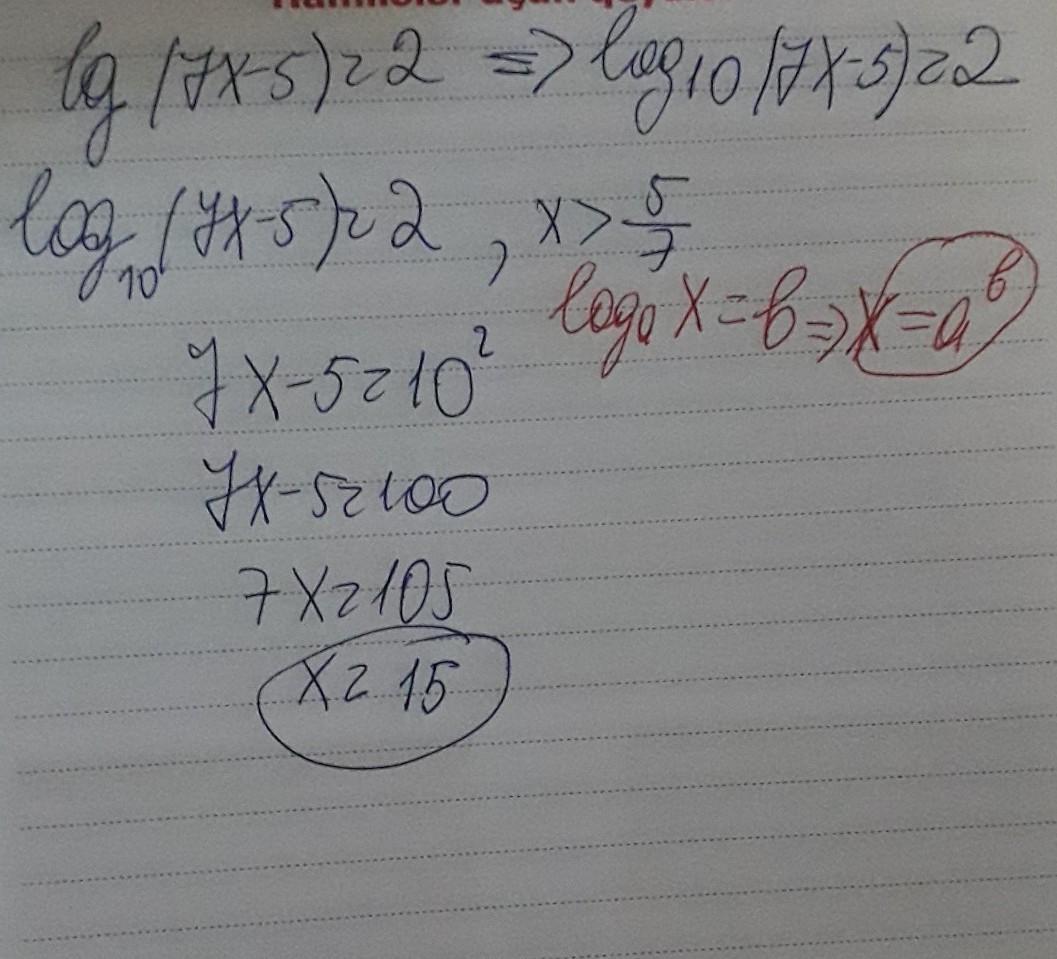 lg (7x-5)=2 => log₁₀(7x-5)=2
log₁₀(7x-5)=2 , x > 5/7
logₐ x = b => x = aᵇ
7x-5=10²
7x-5=100
7x=105
x=15